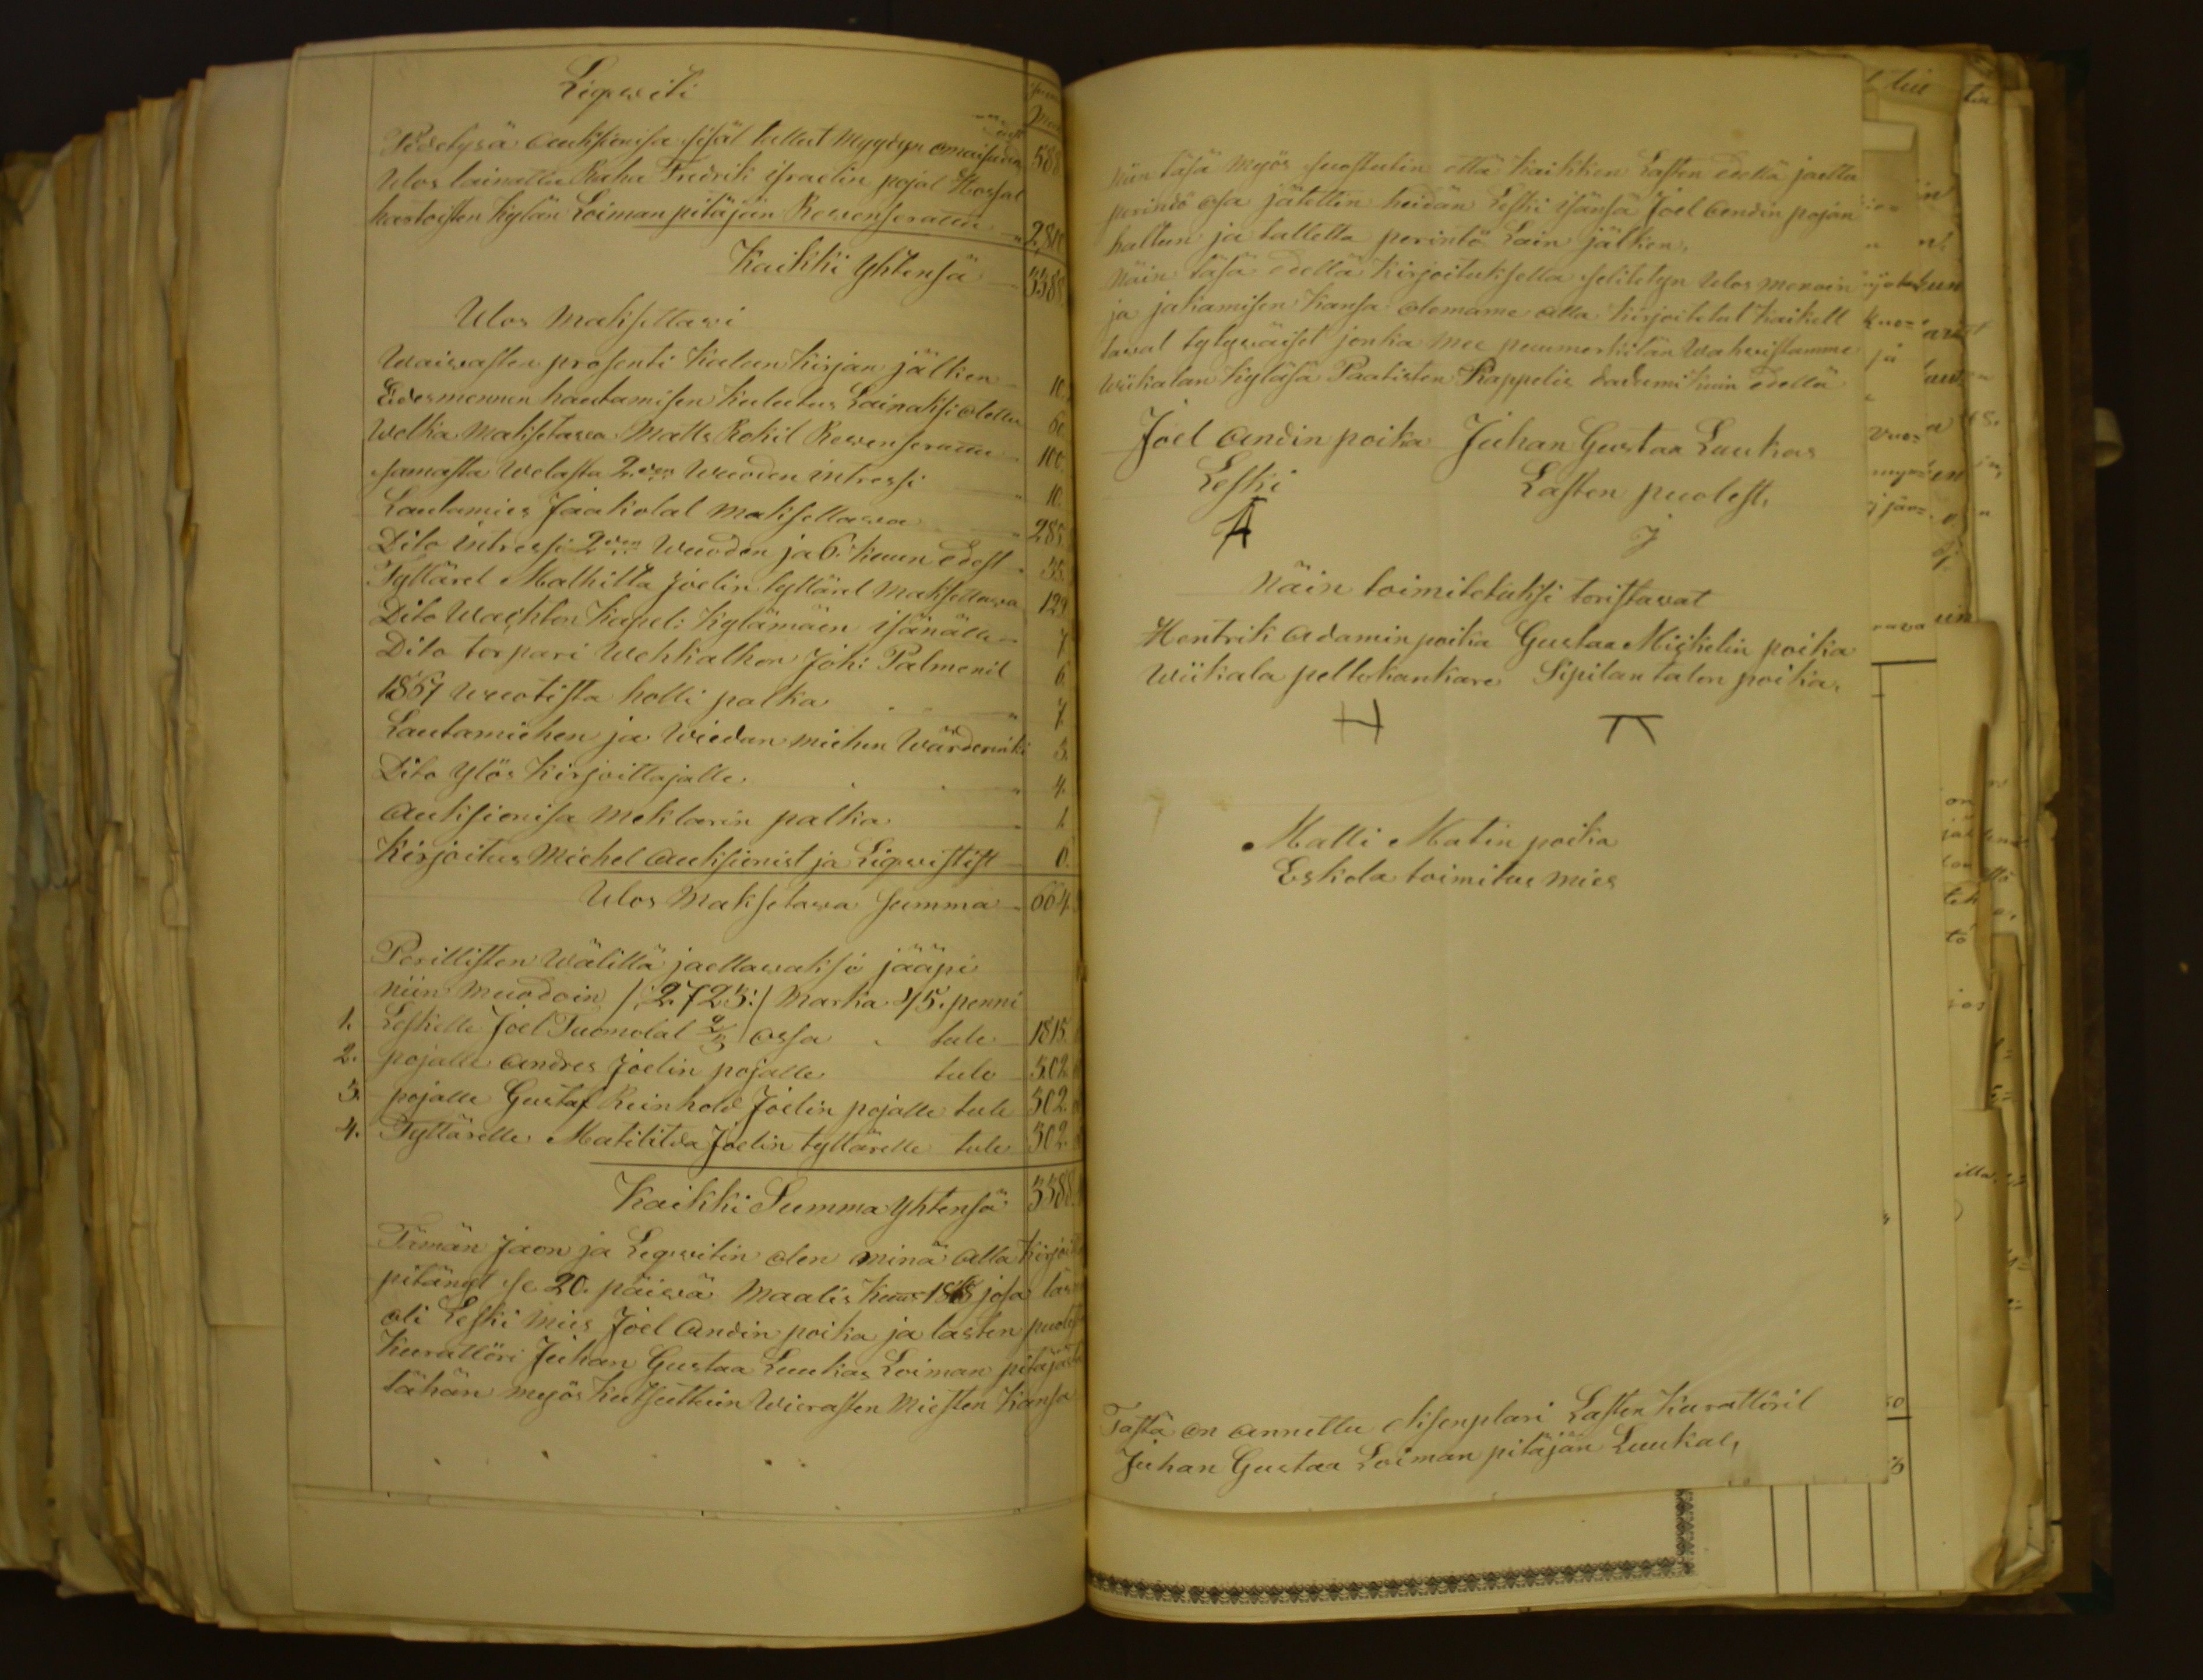 Liqwiti
Pidetysä auktsionisa sisäl tullut Myydyn omaisuden 588
Ulos lainattu Raha Fredrik israelin pojal Kossal
kartoisten kylän Loiman pitäjän Rewenserattu 280
Kaikki Yhtensä 3388
Ulos Maksettawi
Waiwasten prosenti Kaluun Kirjan jälken 10.
Edesmennen hautamisen Kulutus Lainaksi otettu 60
Welka Maksetawa Matts Kokil Rewenserattu 100.
samasta Welasta 2.den Wuoden intressi 10.
Lautamies Jaakolal Maksettawa 285.
Dito intressi 2den Wuoden ja 6. kuun edest 35.
Tyttärel Malhilta Joelin tyttärel Maksettawa 129
Dito Wachton Kapeli Kylämäen isänälle 7
Dito torpari Wehkalhon Johi Palmenil 6.
1867 Wuotista holli palka 7.
Lautamiehen ja Wiedan miehen Wärderinki 3.
Dito Ylös Kirjoittajalle 4.
Auksionisa Meklarin palka 1.
Kirjoitus Michel Auksionist ja Liqwistist 0.
Ulos Maksetawa summa 664
Perillisten Wälillä jaettawaksi jääpi
niin muodoin /: 2723 :/ Marka 45. penni
1. Leskelle Joel Tuomolal 2/3 ossa tule 1815.
2. pojalle Andres Joelin pojalle tule 302.
3. pojalle Gustaf Reinhold Joelin pojalle tule 302.
4. Tyttärelle Matilitda Joelin tyttärelle tule 302.
Kaikki Summa Yhtensä 3388.
Tämän Jaon ja Leqwitin olen minä alla Kirjoit
pitänyt se 20. päiwä Maalis Kuus 1868 josa läs
oli Leski Mies Joel Andin poika ja lasten puolest
Kurattöri Juhan Gustaa Luukas Loiman pitäjäst
tähän myös Kutsuttuin Wierasten Miesten Kansa
Niin täsä Myös suostutin että kaikken Lasten edellä jaettu
perintö osa jätettin heidän Leski isänsä Joel Andin pojan
haltun ja tallella perintö Lain jälken.
Näin täsä edellä kirjoituksella selitetyn Ulos menoin
ja jakamisen Kansa olemame alla kirjoitetut Kaikell
tawal tytywäiset jonka Mee puumerkilän Wahwistamme
Wiikalan Kyläsä Paatisten Kappelis dadumi kuin edellä
Joel Andin poika Juhan Gustaa Luukas
Leski Lasten puolest,
A J
Näin toimitetuksi toristawat
Hentrik Adamin poika Gustaa Mickelin poika
Wiikala peltokankare Sipilan talon poika,
H
Matti Matin poika
Eskola toimitus mies
Tästä on annettu eksenplari Lasten Kurattöril
Juhan Gustaa Loiman pitäjän Luukal,